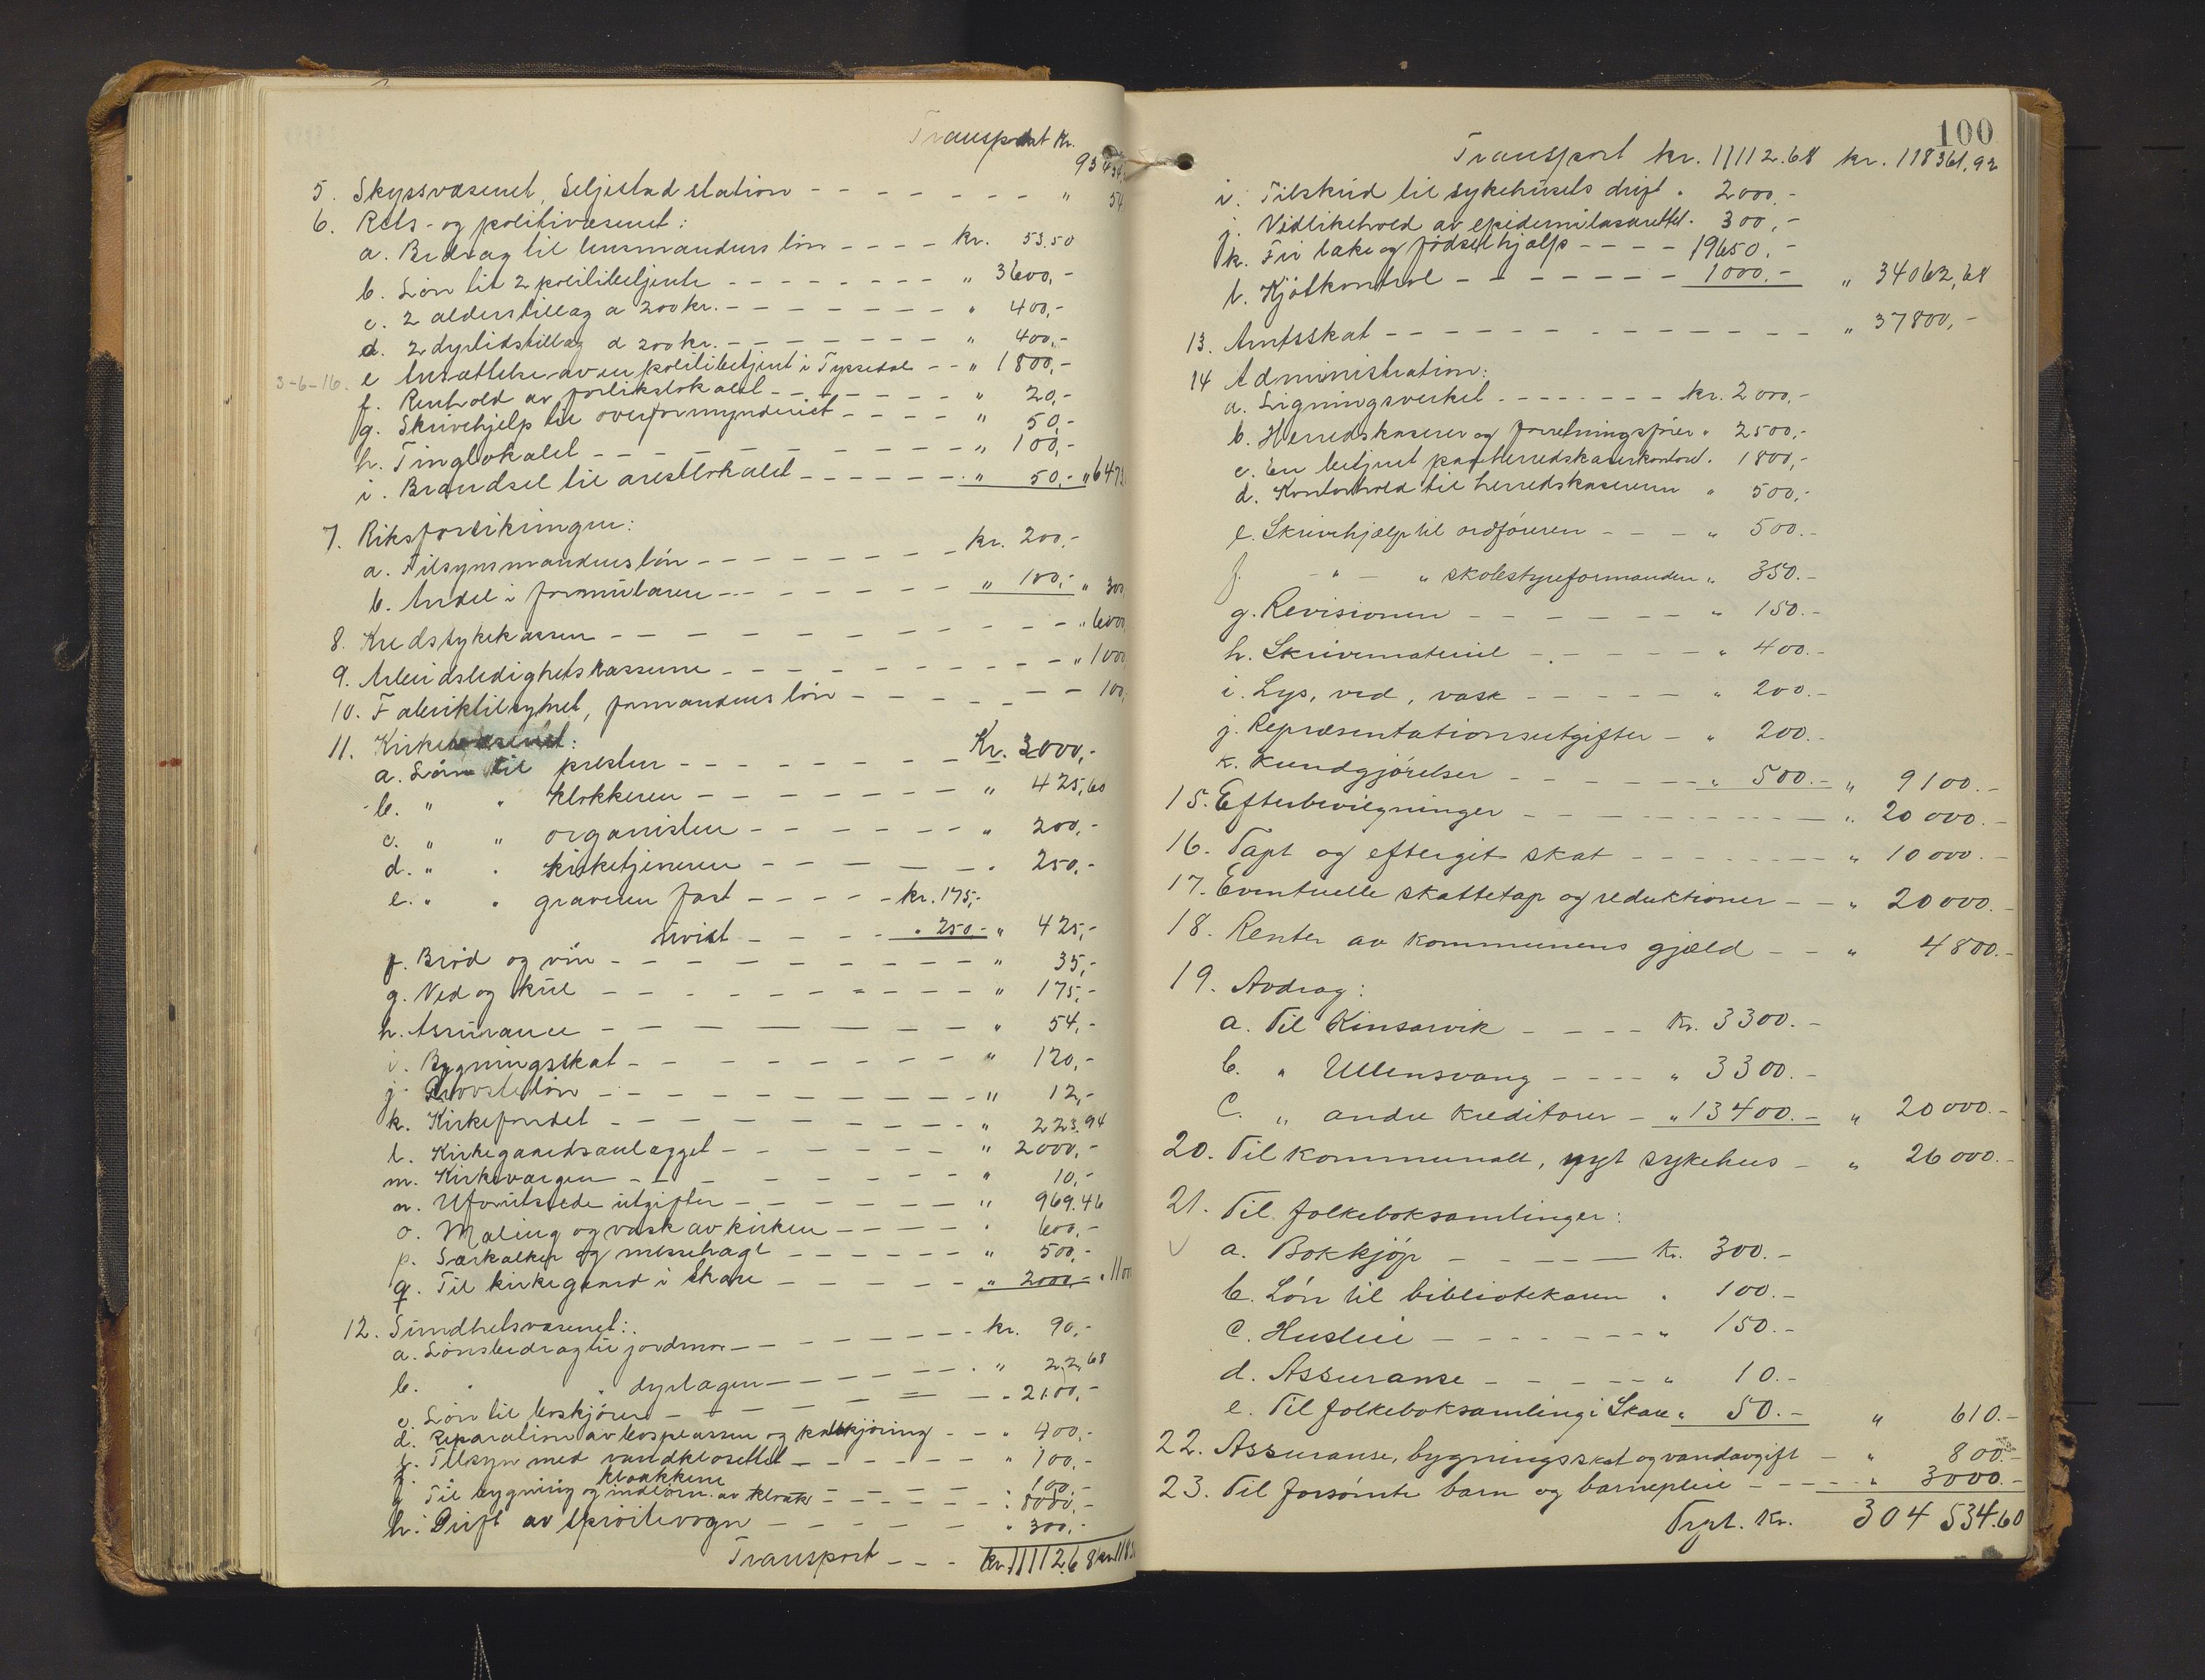 Transport Kr.
934
5. Skyssvæsenet, Seljestad station - - - - - - - " 54
6. Rets- og politivæsenet:
a. Bidrag til lensmandens løn - - - - kr. 53.50
b. Løn til 2 politibetjente - - - - - - - - " 3600,-
c. 2 alderstillæg a 200 kr. - - - - - - - " 400,-
d. 2 dyrtidstillæg a 200 kr. - - - - - - - " 400,-
3-6-16. e Ansættelse av en politibetjent i Tyssedal - - " 1800,-
f. Renhold av forlikslokalet - - - - - - - " 20,-
g. Skrivehjelp til overformynderiet - - - - " 50,-
h. Tinglokalet - - - - - - - - - - - " 100,-
i. Brændsel til arestlokalet - - - - - - " 50.- " 647
7. Riksforsikringen:
a. Tilsynsmandens løn - - - - - - - - kr. 200,-
b. Andel i formularer - - - - - - - - " 100,- " 300,
8. Kredssykekassen - - - - - - - - - - - - " 6000
9. Arbeidsledighetskasserne - - - - - - - - - - " 1000
10. Fabriktilsynet, formandens løn - - - - - - - 100,
11. Kirkevæsenet:
a. Løn til presten - - - - - - - - Kr. 3000,-
b. " " klokkeren - - - - - - - - " 425,60
c. " " organisten - - - - - - - " 200,-
d. " " kirketjeneren - - - - - - " 250,-
e. " " graveren fast - - - - - kr. 175,-
uvist - - - - " 250.- " 425,-
f. Brød og vin - - - - - - - - - - " 35,-
g. Ved og kul - - - - - - - - - - " 175,-
h. Assurance - - - - - - - - " 54,-
i. Bygningsskat - - - - - - - - - " 120,-
j. Provsteløn - - - - - - - - - - " 12,-
k. Kirkefondet - - - - - - - - - " 223.94
l. Kirkegaardsanlægget - - - - - - - " 2000,-
m. Kirkeværgen - - - - - - - - " 10,-
n. Uforutsede utgifter - - - - - - - " 969.46
o. Maling og vask av kirken - - - - - " 600,-
p. Særkalker og messehagl - - - - - - " 500,-
q. Til kirkegaard i Skare - - - - - - " 2000,- " 1100
12. Sundhetsvæsenet:
a. Lønsbidrag til jordmor - - - - - - - kr. 90,-
b. " " dyrlægen - - - - - - - " 22,68
c. Løn til boskjører - - - - - - - - " 2100,-
d. Reparation av bosplassen og kalkkjøring - - " 400,-
e. Tilsyn med vandklosettet - - - - - - " 100,-
f. " kloakkene - - - - - - " 100,-
g Til bygning og indlem. av kloak - - - - - " 8000,-
h. Drift av sprøitevogn - - - - - - - " 300,-
Transport - - - kr. 11112.68 kr. 118
100
Transport kr. 11112.68 kr. 118361,92
i. Tilskud til sykehusets drift " 2000,-
j. Vedlikehold av epidemilasarettet. 300,-
k. Fri læke og fødselhjælp - - - - 19650,-
l. Kjøtkontrol - - - - - - - - 1000.- " 34062,68
13. Amtsskat - - - - - - - - - - - - - - - " 37800,-
14 Administration:
a. Ligningsverket - - - - - - - - kr. 2000,-
b. Herredskasserer og forretningsfører " 2500,-
c. En betjent paa herredskasserkontoret. 1800,-
d. Kontorhold til herredskassereren " 500,-
e. Skrivehjælp til ordføreren - - - " 500.-
f. - " - " skolestyreformanden " 350.-
g. Revisionen - - - - - - - " 150.-
h. Skrivemateriel - - - - - - " 400.-
i. Lys, ved, vask - - - - - - " 200.-
j. Repræsentationsutgifter - " 200.-
k. Kundgjørelser - - - - - - " 500.- " 9100.-
15. Efterbevilgninger - - - - - - - - - - - " 20000.-
16. Tapt og eftergit skat - - - - - - - - - " 10000.-
17. Eventuelle skattetap og reduktioner - - " 20000.-
18. Renter av kommunens gjæld - - " 4800.-
19. Avdrag:
a. Til Kinsarvik - - - - Kr. 3300.-
b. " Ullensvang - - - - " 3300.-
C. " andre kreditorer - " 13400.- " 20000.-
20. Til kommunalt, nyt sykehus - " 26000.-
21. Til folkeboksamlinger:
a. Bokkjøp - - - - - - Kr. 300.-
b. Løn til bibliotekaren " 100.-
c. Husleie - - - - - - - " 150.-
d. Assuranse - - - - - - " 10.-
e. Til folkeboksamling i Skare " 50.- " 610.-
22. Assuranse, bygningsskat og vandavgift - " 800.-
23. Til forsømte barn og barnepleie - - - - " 3000.-
Trpt. Kr. 304 534.60